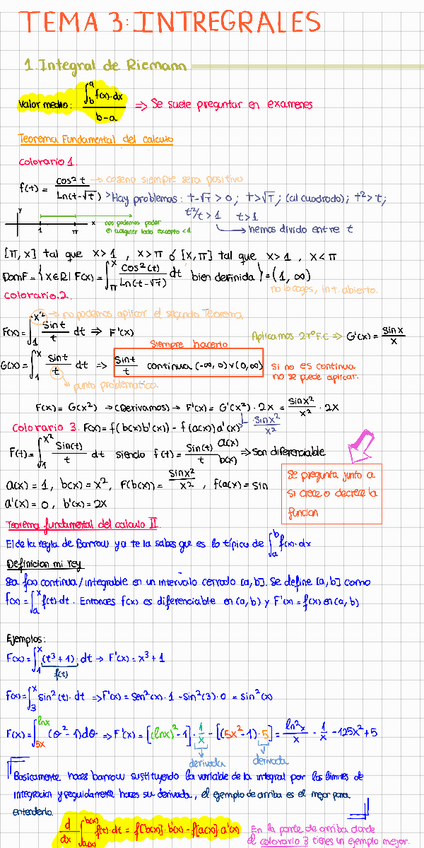 TEMA 3: INTREGRALES
1. Integral de Riemann
Valor medio: ∫_b^a f(x)·dx / b-a ⇒ Se suele preguntar en examenes
Teorema Fundamental del calculo
colorario 1.
f(t) = cos² t / Ln(t-√t) → coseno siempre sera positivo
> Hay problemas: t-√t > 0; t>√t; (al cuadrado); t²>t;
t²/t > 1 t>1
↳ hemos divido entre t
y 1 π x
nos podemos poder en cualquier lado excepto <1
[π, x] tal que x>1, x>π ó [x, π] tal que x>1, x<π
Dom F = {x∈R| F(x) = ∫_π^x cos²(t) / Ln(t-√t) dt bien definida} = (1, ∞)
no lo coges, int. abierto.
colorario 2.
→ no podemos aplicar el segundo Teorema
F(x) = ∫_1^x² sin t / t dt ⇒ F'(x)
Aplicamos 2TºF.C ⇒ G'(x) = sin x / x
Siempre hacerlo
G(x) = ∫_1^x sin t / t dt ⇒ sin t / t continua (-∞, 0) ∨ (0, ∞)
si no es continua no se puede aplicar.
punto problematico
F(x) = G(x²) → (Derivamos) → F'(x) = G'(x²)·2x = sin x² / x² · 2x
Colorario 3. F(x) = f(b(x))b'(x) - f(a(x))a'(x)
sin x² / x²
F(t) = ∫_1^x² sin(t) / t dt siendo f(t) = sin(t) / t a(x) b(x) ⇒ Son diferenciable
a(x) = 1, b(x) = x², F(b(x)) = sin x² / x², f(a(x)) = sin
a'(x) = 0, b'(x) = 2x
Se pregunta junto a
si crece o decrece la
funcion
Teorema fundamental del calculo II
El de la regla de Barrow ya te la sabes que es lo típico de ∫_a^b f(x)·dx
Definicion mi rey
Sea f(x) continua/integrable en un intervalo cerrado [a, b]. Se define [a, b] como
f(x) = ∫_a^x f(t)·dt. Entonces f(x) es diferenciable en (a, b) y F'(x) = f(x) en (a, b)
Ejemplos:
F(x) = ∫_1^x (t³+1)·dt → F'(x) = x³+1
f(t)
f(x) = ∫_3^x sin²(t)·dt ⇒ F'(x) = Sen²(x)·1 - sin²(3)·0 = sin²(x)
F(x) = ∫_5x^lnx (θ²-1)dθ ⇒ F'(x) = [(lnx)²-1]·1/x - [(5x²-1)·5] = ln²x / x - 1/x - 125x²+5
derivada derivada
Basicamente haces barrow sustituyendo la variable de la integral por los limites de
integracion y seguidamente haces su derivada, el ejemplo de arriba es el mejor para
entenderlo
d/dx ∫_a(x)^b(x) f(t)·dt = f[b(x)]·b'(x) - f[a(x)]·a'(x)
En la parte de arriba donde
el colorario 3 tienes un ejemplo mejor.